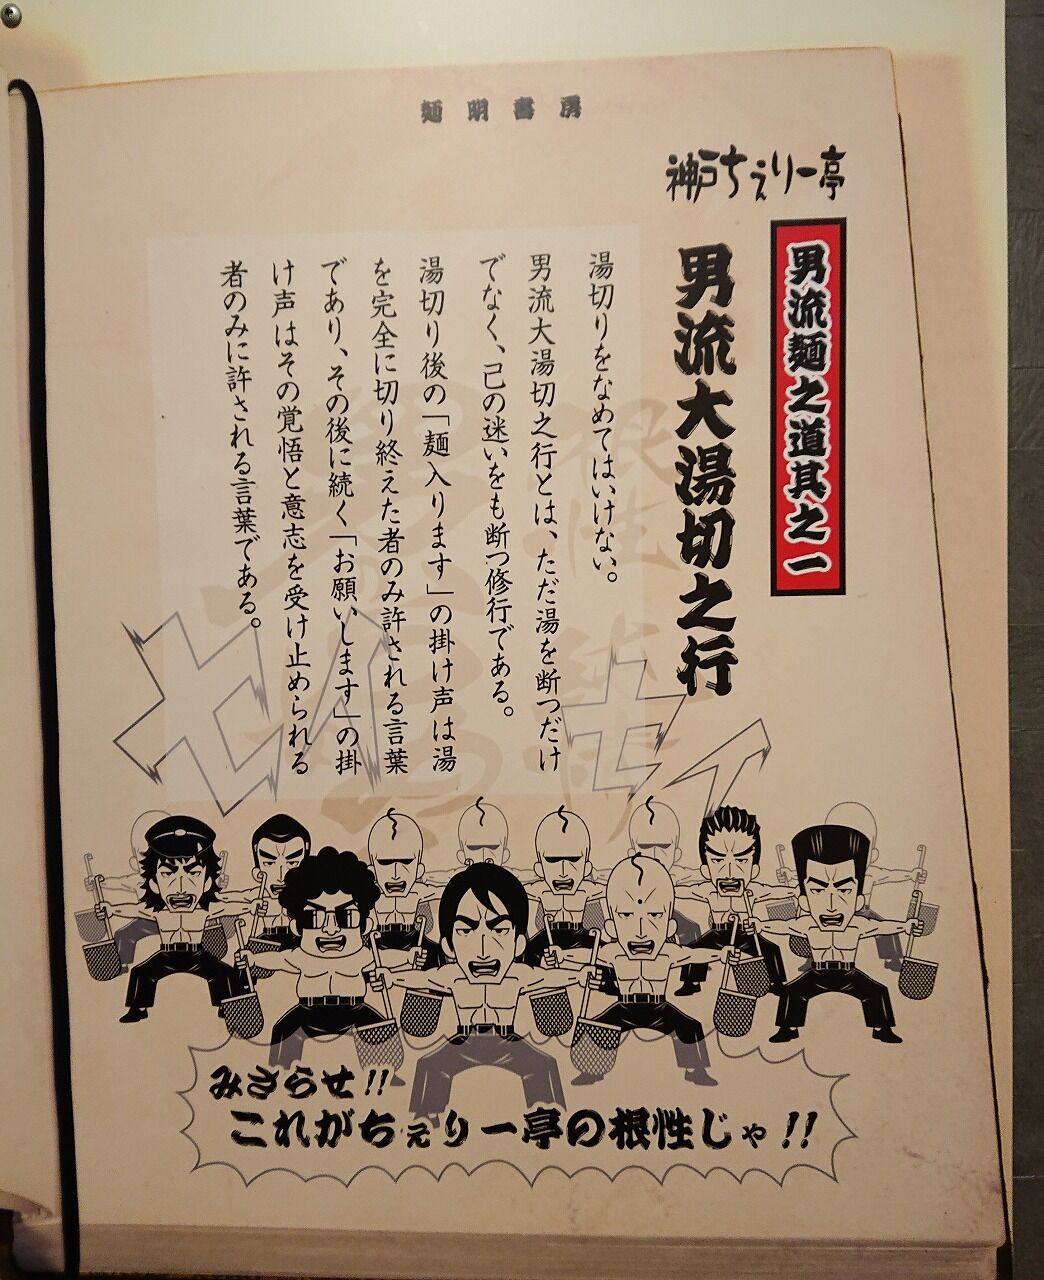 麺明書房
神戸ちぇりー亭
男流麺之道其之一
男流大湯切之行
湯切りをなめてはいけない。
男流大湯切之行とは、ただ湯を断つだけ
でなく、己の迷いをも断つ修行である。
湯切り後の「麺入ります」の掛け声は湯
を完全に切り終えた者のみ許される言葉
であり、その後に続く「お願いします」の掛
け声はその覚悟と意志を受け止められる
者のみに許される言葉である。
セイ
セイ
みさらせ!!
これがちぇりー亭の根性じゃ!!